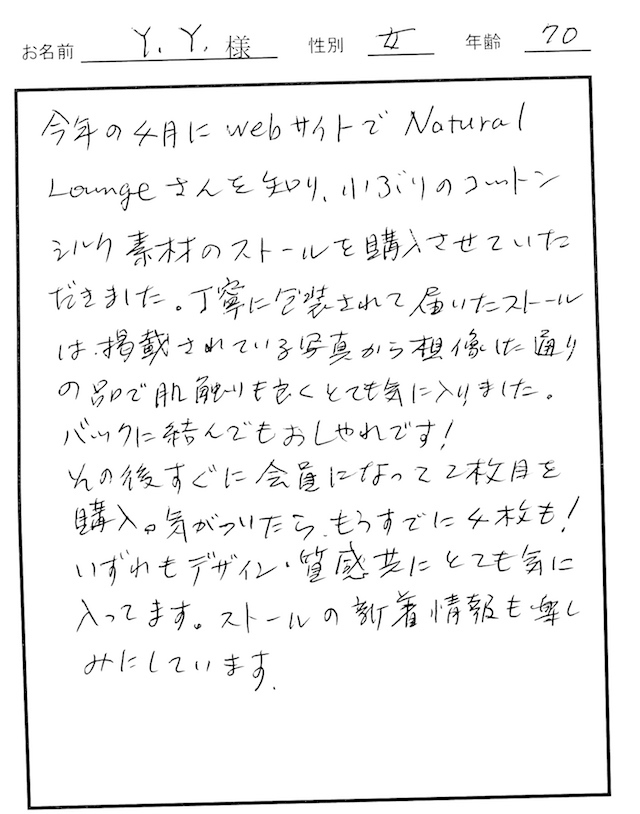 お名前 Y. Y. 様 性別 女 年齢 70
今年の4月にwebサイトでNatural
Loungeさんを知り、小ぶりのコットン
シルク素材のストールを購入させていた
だきました。丁寧に包装されて届いたストール
は、掲載されている写真から想像した通り
の品で肌触りも良くとても気に入りました。
バックに結んでもおしゃれです!
その後すぐに会員になって2枚目を
購入。気がついたら、もうすでに4枚も!
いずれもデザイン・質感共にとても気に
入ってます。ストールの新着情報も楽し
みにしています。